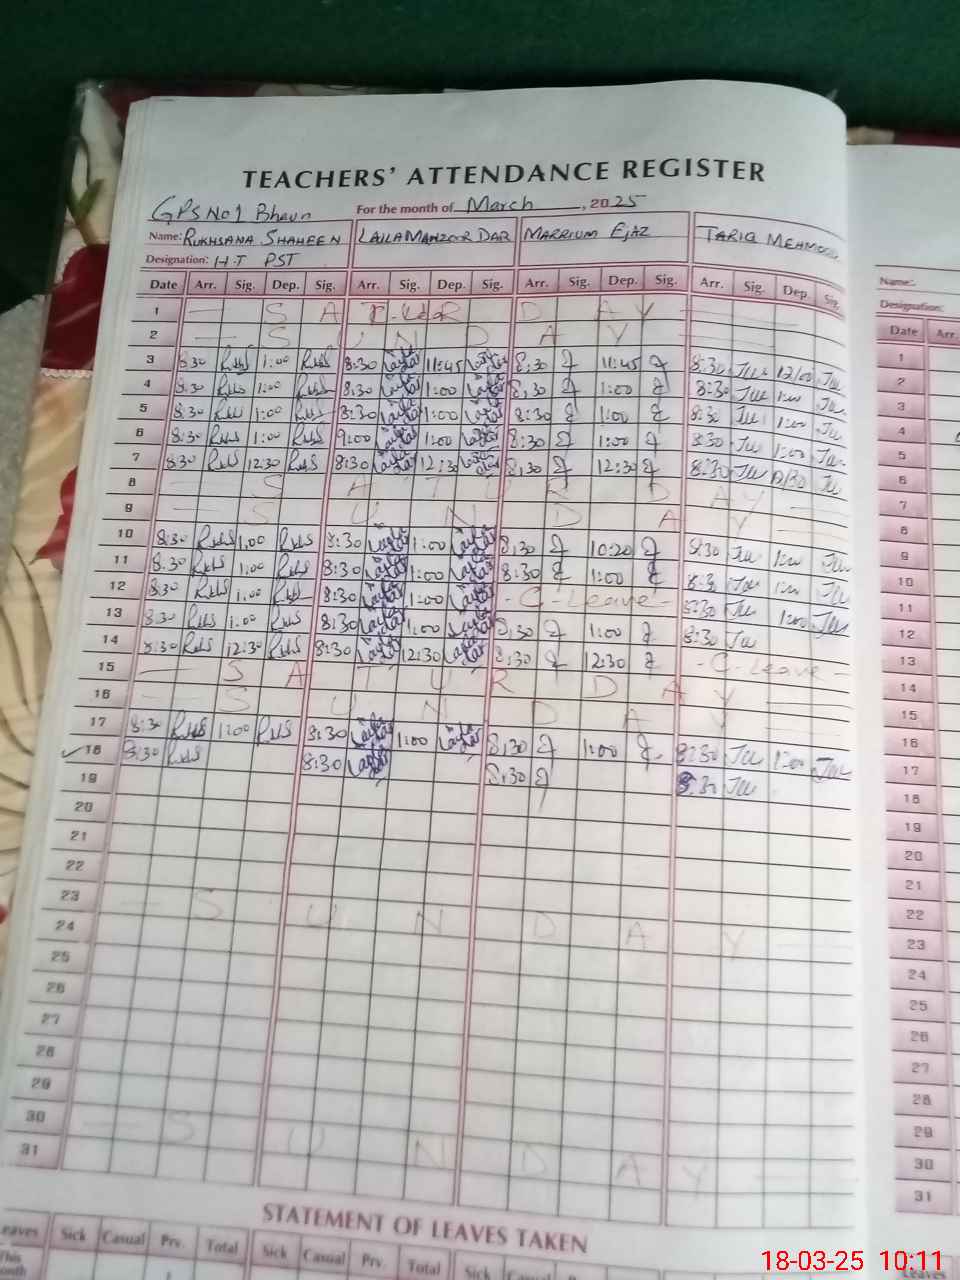 TEACHERS' ATTENDANCE REGISTER
GPS No 1 Bhaun For the month of March, 2025
Name: RUKHSANA SHAHEEN LAILA MANZOOR DAR MARRIUM EJAZ TARIQ MEHMOOD Name:
Designation: H.T PST Designation:
Date Arr. Sig. Dep. Sig. Arr. Sig. Dep. Sig. Arr. Sig. Dep. Sig. Arr. Sig. Dep. Sig. Date Arr.
1 — S A T U R D A Y —
2 — S U N D A Y —
3 8:30 RuhS 1:00 RuhS 8:30 Laila dar 11:45 Laila dar 8:30 11:45 8:30 12:00
4 8:30 RuhS 1:00 RuhS 8:30 Laila dar 1:00 Laila dar 8:30 1:00 8:30 1:00
5 8:30 RuhS 1:00 RuhS 8:30 Laila dar 1:00 Laila dar 8:30 1:00 8:30 1:00
6 8:30 RuhS 1:00 RuhS 9:00 Laila dar 1:00 Laila dar 8:30 1:00 8:30 1:00
7 8:30 RuhS 12:30 RuhS 8:30 Laila dar 12:30 Laila dar 8:30 12:30 8:30
8 — S A T U R D A Y —
9 — S U N D A Y —
10 8:30 RuhS 1:00 RuhS 8:30 Laila dar 1:00 Laila dar 8:30 10:20 8:30 1:00
11 8:30 RuhS 1:00 RuhS 8:30 Laila dar 1:00 Laila dar 8:30 1:00 8:30 1:00
12 8:30 RuhS 1:00 RuhS 8:30 Laila dar 1:00 Laila dar - C - Leave - 8:30 1:00
13 8:30 RuhS 1:00 RuhS 8:30 Laila dar 1:00 Laila dar 8:30 1:00 8:30
14 8:30 RuhS 12:30 RuhS 8:30 Laila dar 12:30 Laila dar 8:30 12:30 - C - Leave -
15 — S A T U R D A Y —
16 — S U N D A Y —
17 8:30 RuhS 1:00 RuhS 8:30 Laila dar 1:00 Laila dar 8:30 1:00 8:30 1:00
✓18 8:30 RuhS 8:30 Laila dar 8:30 8:30
19
20
21
22
23 — S U N D A Y —
24
25
26
27
28
29
30 — S U N D A Y —
31
1
2
3
4
5
6
7
8
9
10
11
12
13
14
15
16
17
18
19
20
21
22
23
24
25
26
27
28
29
30
31
STATEMENT OF LEAVES TAKEN
Leaves Sick Casual Prv. Total Sick Casual Prv. Total Sick Casual Leaves
This
month
18-03-25 10:11